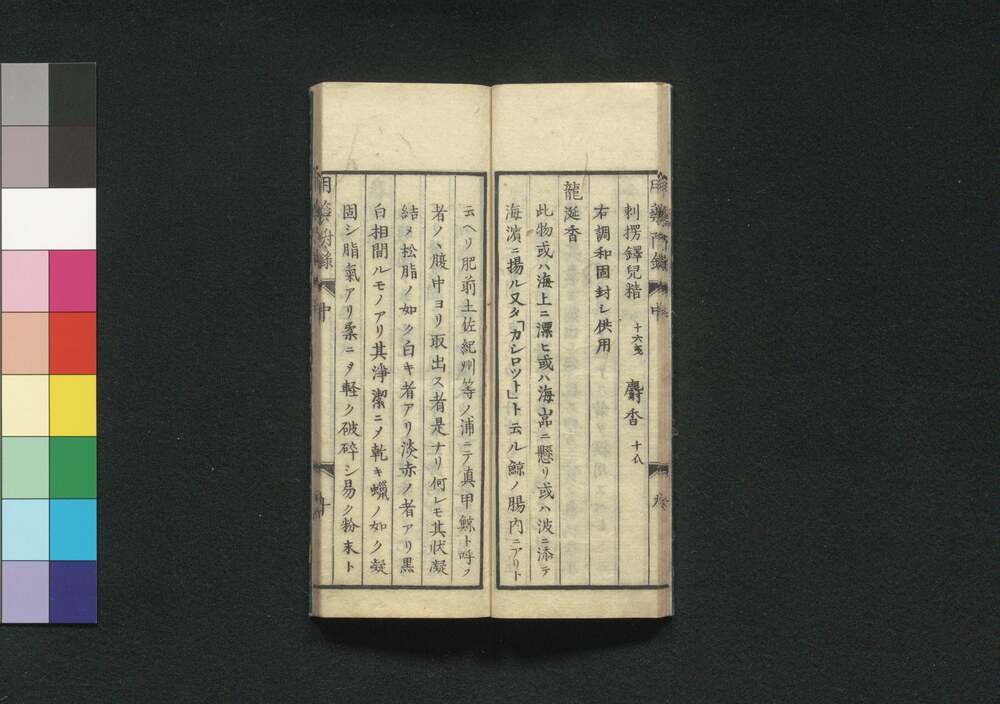 刺揩鐸兒䅥 十六戔 麝香 十八
右調和固封シ供用
龍涎香
此物或ハ海上ニ漂ヒ或ハ海岩ニ懸リ或ハ波ニ添テ
海濱ニ揚ル又タ「カシロツト」ト云ル鯨ノ腸内ニアリト
云ヘリ肥前土佐紀州等ノ浦ニテ真甲鯨ト呼フ
者ノ、腹中ヨリ取出ス者是ナリ何レモ其状凝
結メ松脂ノ如ク白キ者アリ淡赤ノ者アリ黒
白相間ルモノアリ其浄潔ニメ乾キ蠟ノ如ク凝
固シ脂氣アリ柔ニメ軽ク破碎シ易ク粉末ト